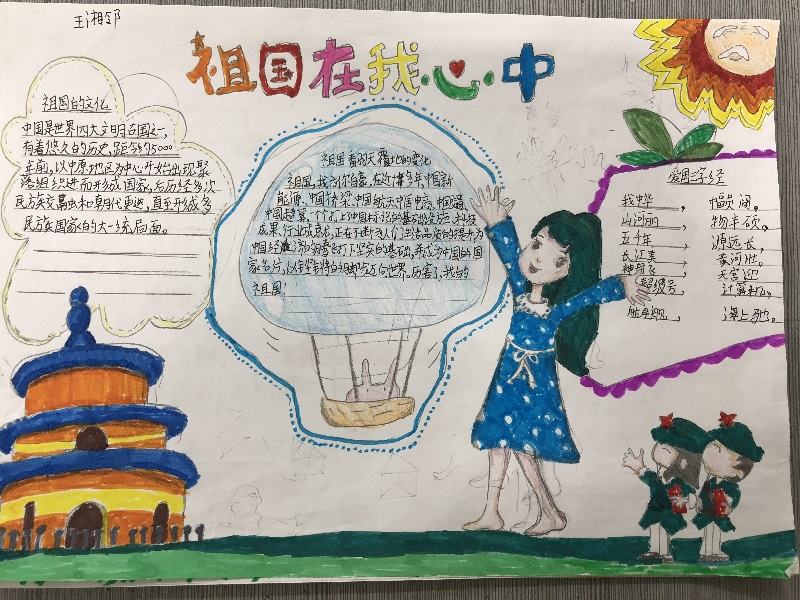 王湘邻
祖国在我心中
祖国的文化
中国是世界四大文明古国之一,
有着悠久的历史,距今约5000
年前,以中原地区为中心开始出现聚
落组织进而形成国家,后历经多次
民族交融和朝代更迭,直至形成多
民族国家的大一统局面。
祖国翻天覆地的变化
祖国,我为你自豪,在这十多年,中国新
能源、中国桥梁、中国航天中国电商、中国
中国超算,一个打上中国标识的基础设施、科技
成果、行业成就,正在不断为人们生活品质的提升,为
中国经济的打下坚实的基础,并成为中国的国
家名片,以坚定的步伐迈向世界。厉害了,我的
祖国!
爱国三字经
我中华, 幅员阔。
山河丽, 物丰硕。
五千年, 源远长,
长江美, 黄河壮。
神舟飞, 天宫迎
超级号, 计算机,
海上驰。